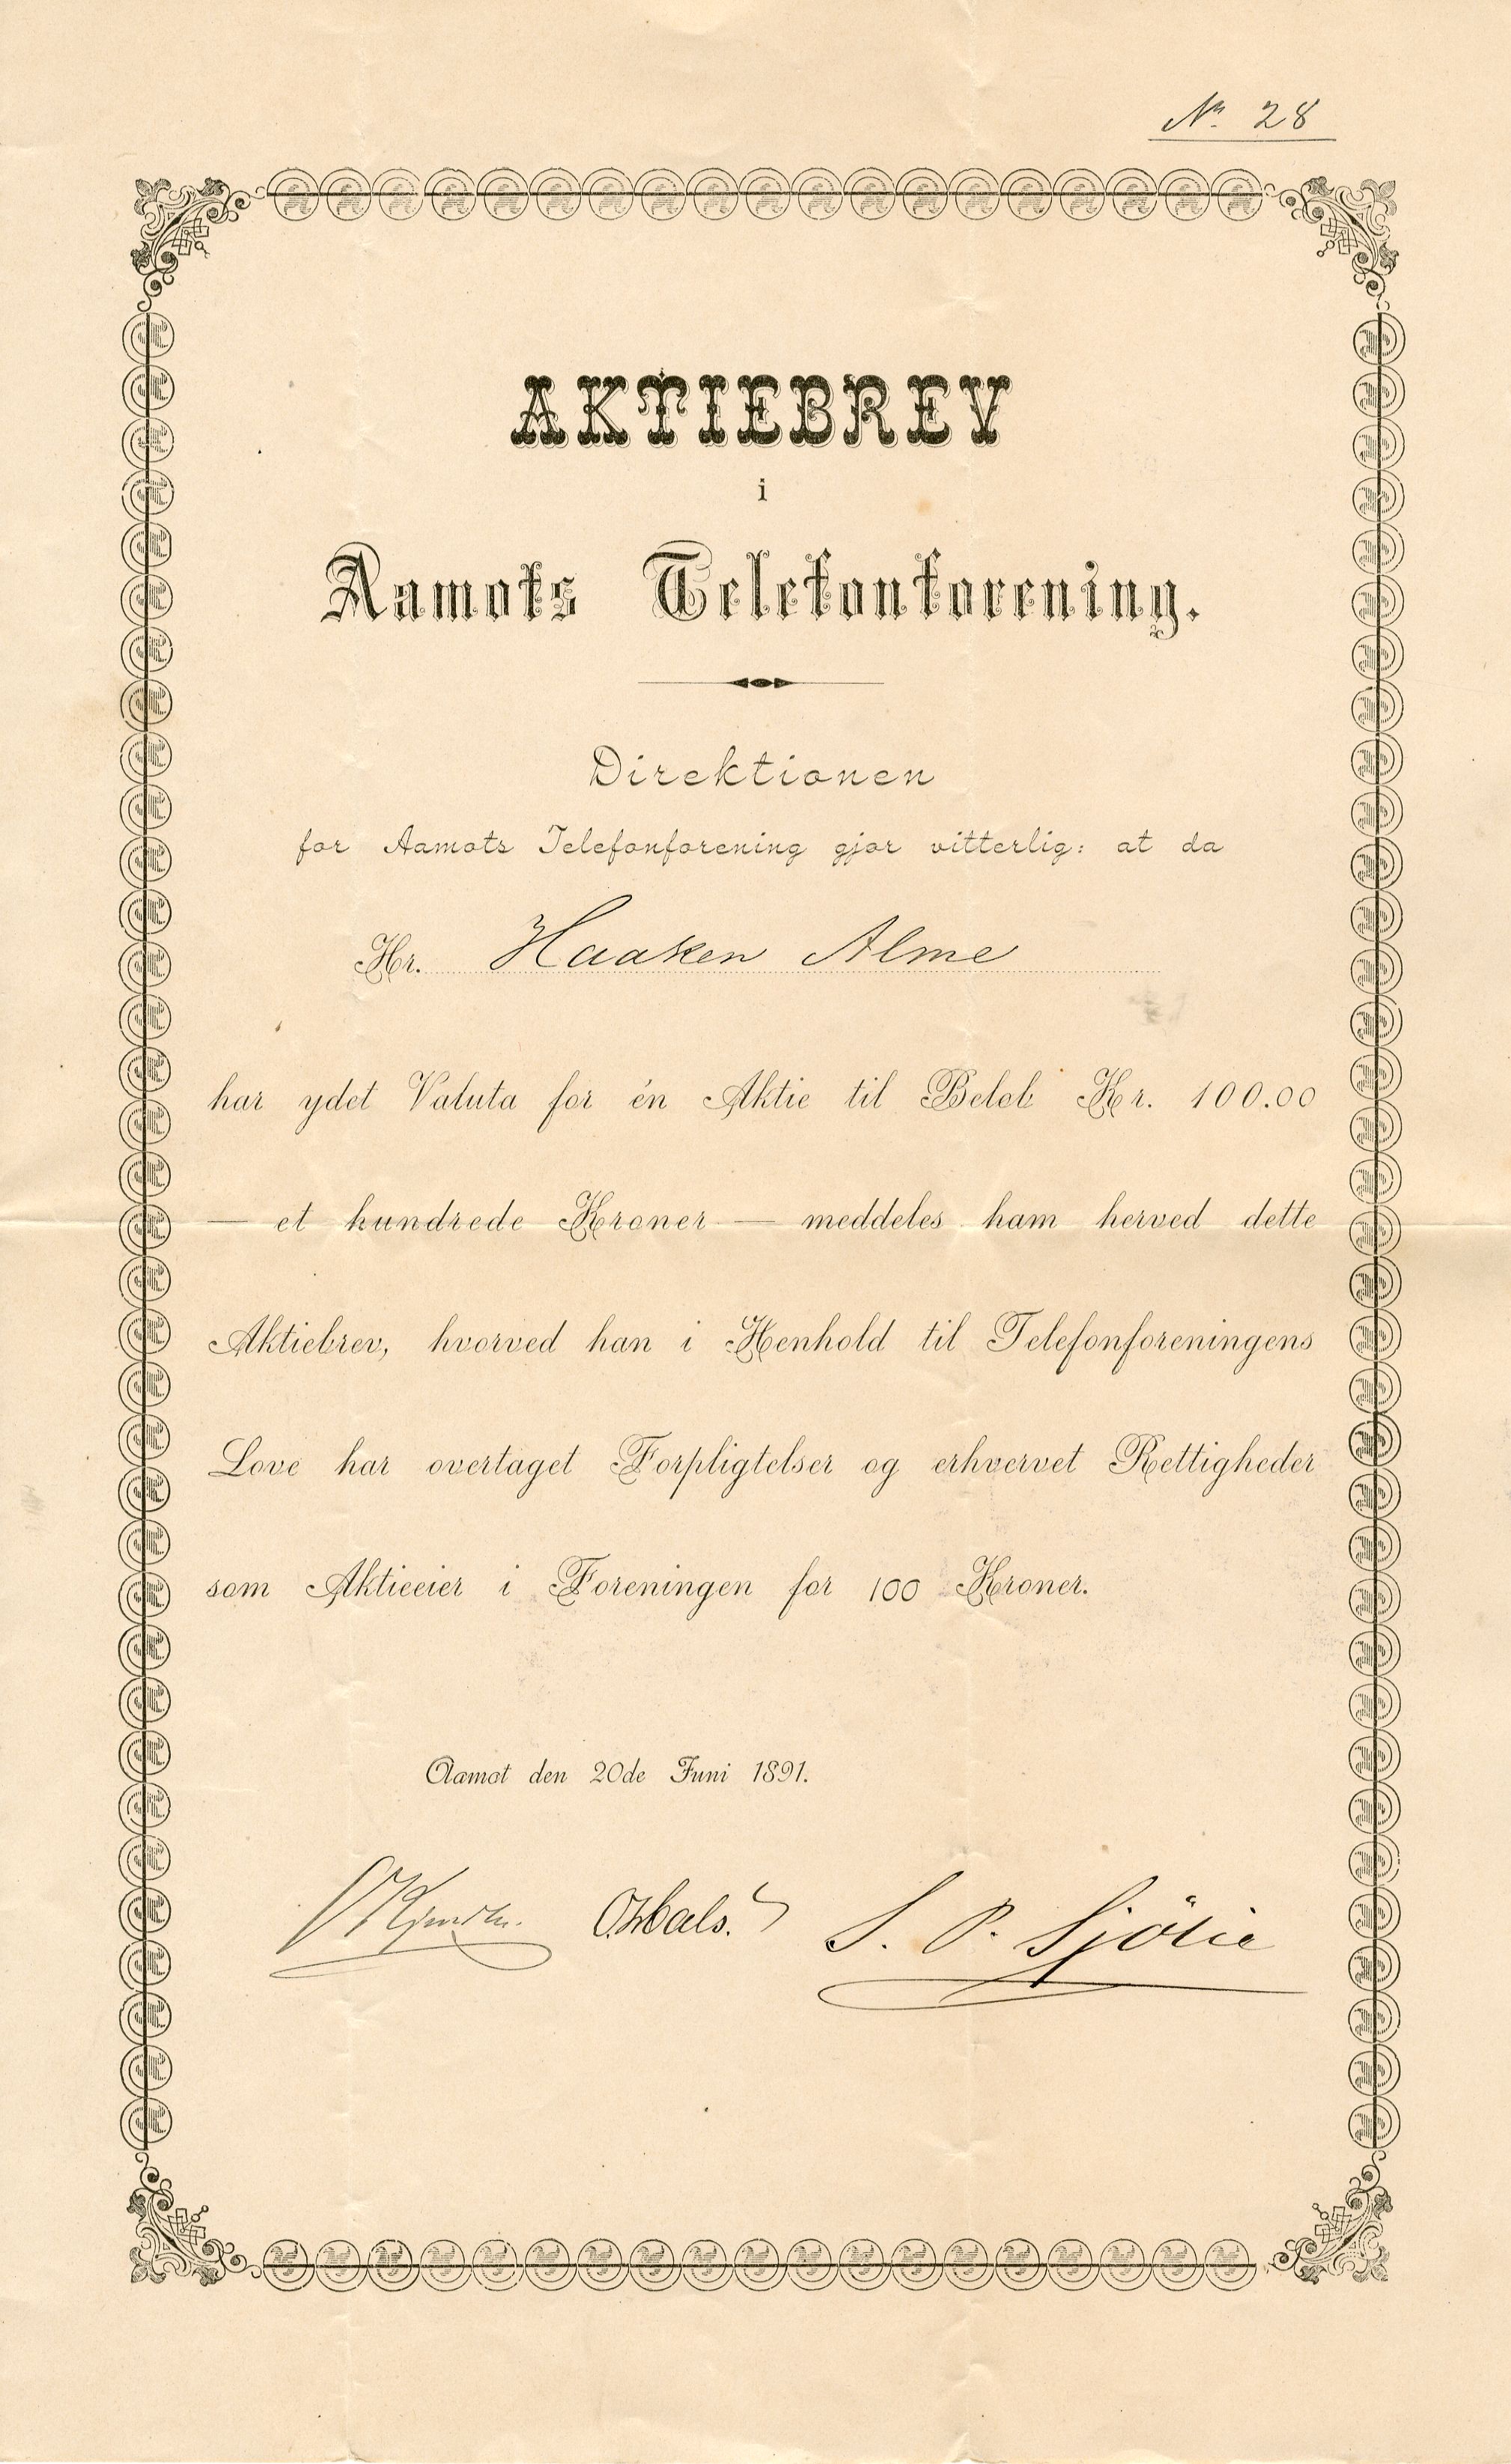 Nr. 28
AKTIEBREV
i
Aamots Telefonforening.
Direktionen
for Aamots Telefonforening gjør vitterlig: at da
Hr. Haaken Alme
har ydet Valuta for én Aktie til Beløb Kr. 100.00
— et hundrede Kroner — meddeles ham herved dette
Aktiebrev, hvorved han i Henhold til Telefonforeningens
Love har overtaget Forpligtelser og erhvervet Rettigheder
som Aktieeier i Foreningen for 100 Kroner.
Aamot den 20de Juni 1891.
S. P. Sjölie